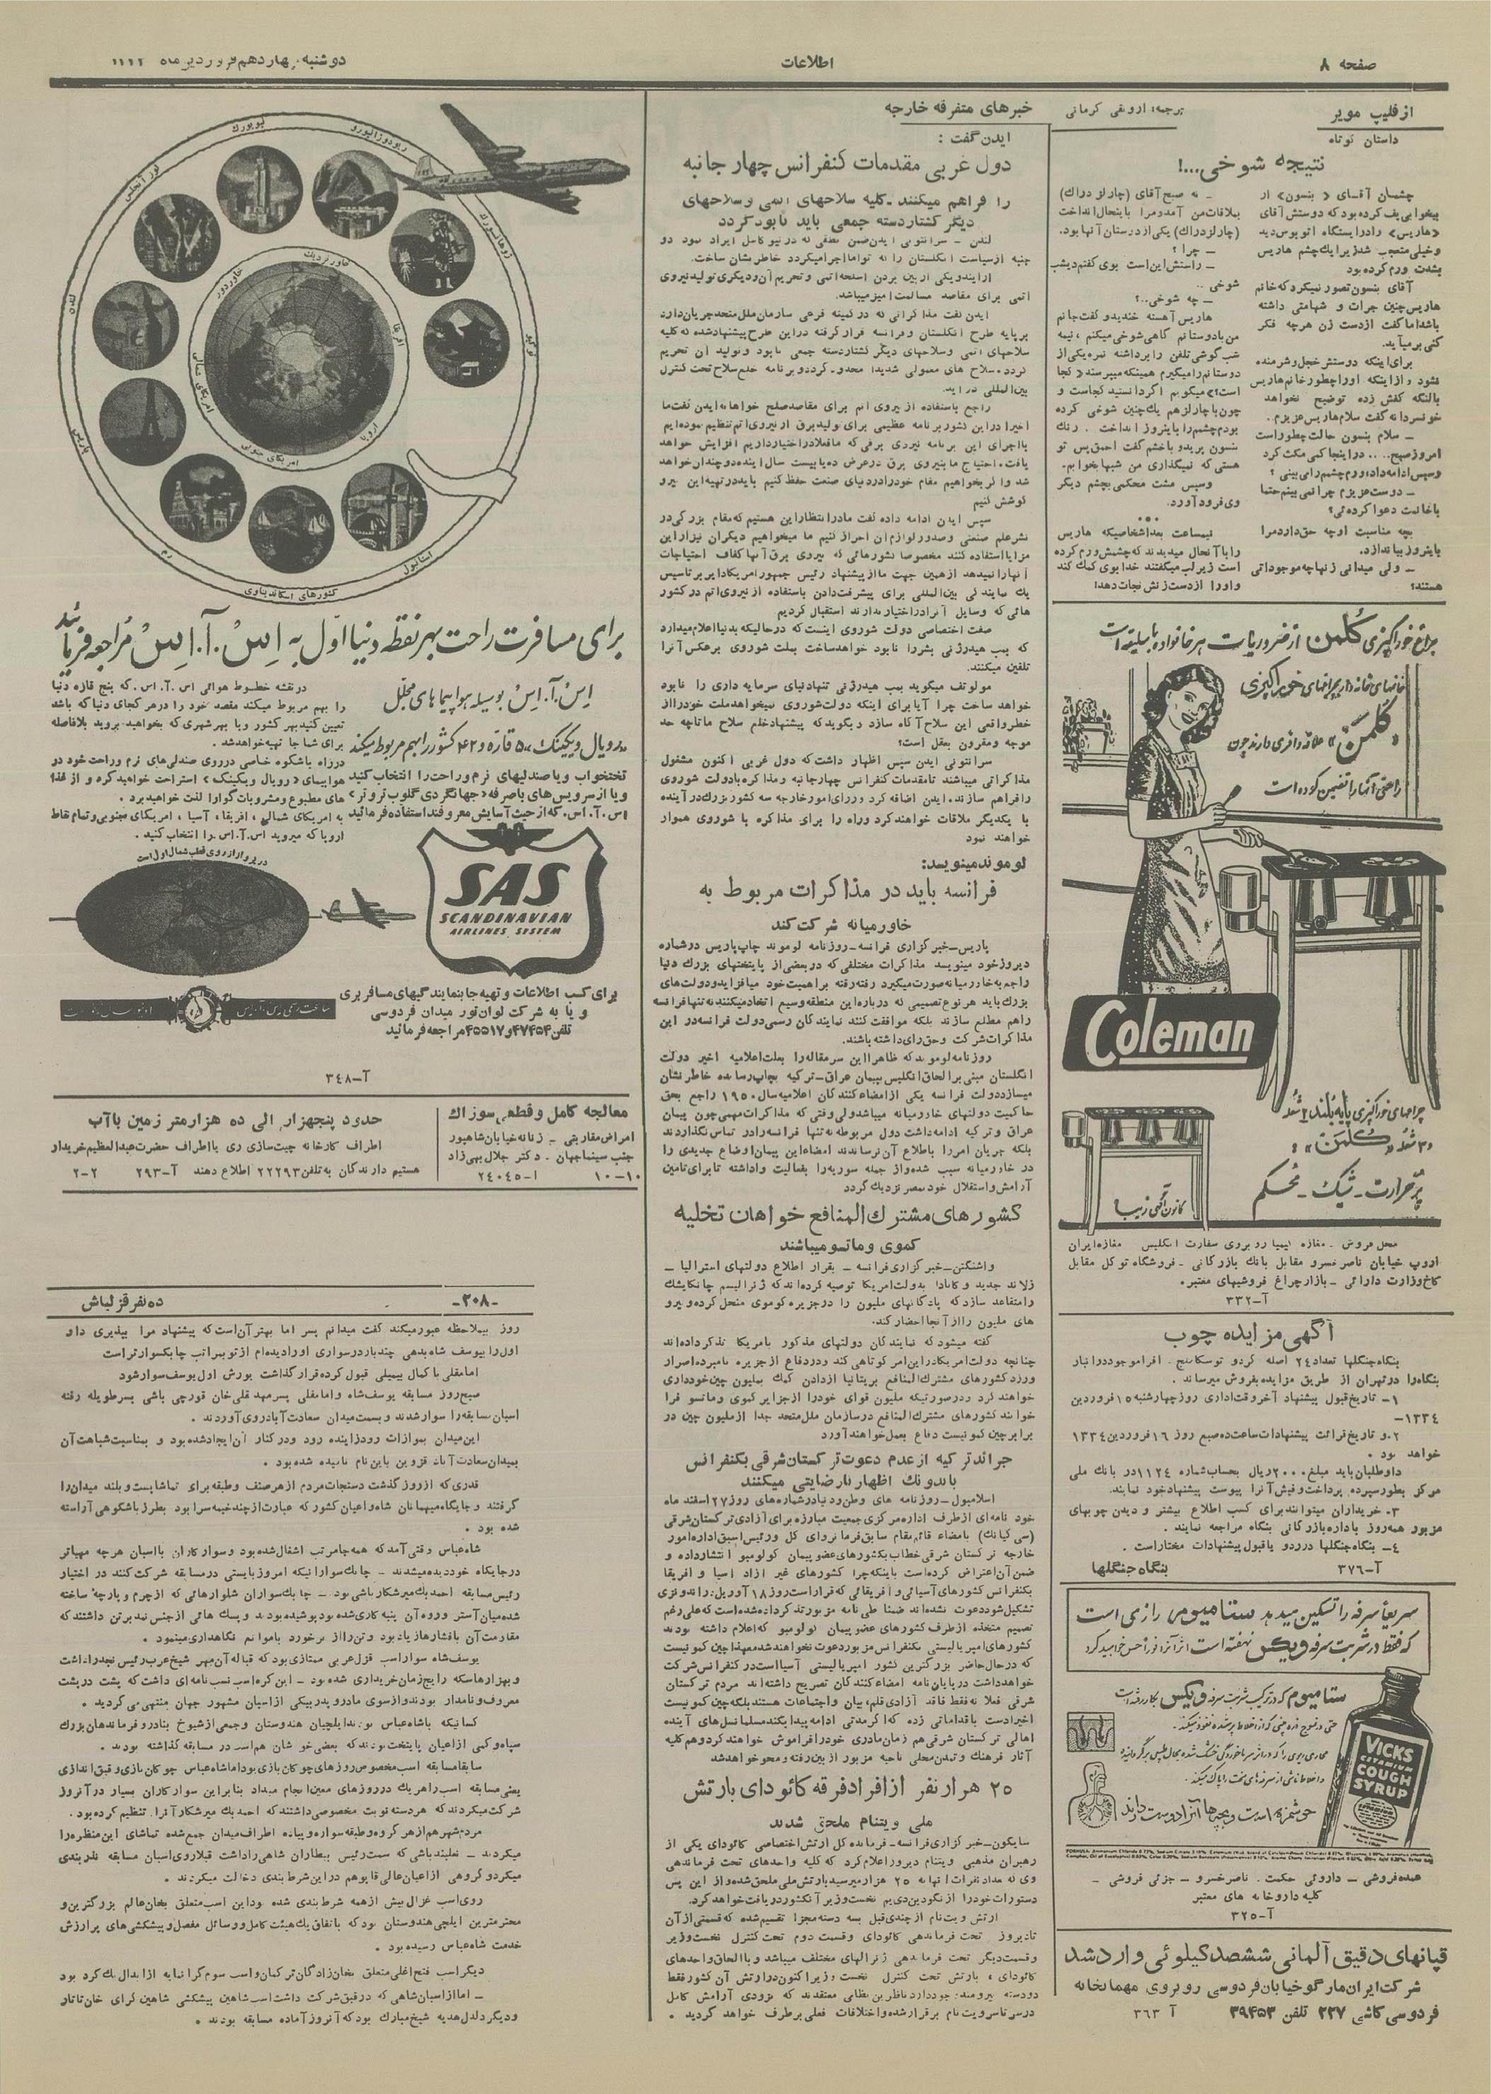 صفحه ۸
اطلاعات
دوشنبه چهاردهم فروردین ماه
از فلیپ مویر
ترجمه: اروقی کرمانی
داستان کوتاه
نتیجه شوخی...!
چشمان آقای « بنسون» از
بیخوابی پف کرده بود که دوستش آقای
«هاریس» را در ایستگاه اتوبوس دید
و خیلی متعجب شد زیرا یک چشم هاریس
بشدت ورم کرده بود
آقای بنسون تصور نمیکرد که خانم
هاریس چنین جرات و شهامتی داشته
باشد اما گفت از دست زن هرچه فکر
کنی برمیآید.
برای اینکه دوستش خجل و شرمنده
نشود و از اینکه او را چطور خانم هاریس
با لنگه کفش زده توضیح نخواهد
خونسردانه گفت سلام هاریس عزیزم.
ـ سلام بنسون حالت چطور است
امروز صبح.... در اینجا کمی مکث کرد
و سپس ادامه داد: ورم چشمم را می بینی ؟
ـ دوست عزیزم چرا نمی بینم حتما
با خانمت دعوا کرده ئی؟
ـ ولی میدانی زنها چه موجوداتی
هستند؟
ـ نه صبح آقای (چارلز دراک)
بملاقات من آمد و مرا باینحال انداخت
(چارلز دراک) یکی از دوستان آنها بود.
ـ چرا ؟
ـ راستش این است بوی گفتم دیشب
شوخی ..
ـ چه شوخی..؟
هاریس آهسته خندید و گفت جانم
من با دوستانم گاهی شوخی میکنم ، نیمه
شب گوشی تلفن را برداشته نمره یکی از
دوستانم را میگیرم همینکه میپرسند « کجا
است؟» میگویم اگر دانستید کجاست و
چون با چارلز هم یک چنین شوخی کرده
بودم چشمم را باینروز انداخت . رنگ
بنسون پرید و با خشم گفت احمق پس تو
هستی که نمیگذاری من شبها بخوابم.
وسپس مشت محکمی بچشم دیگر
وی فرود آورد.
نیمساعت بعد اشخاصیکه هاریس
را با آنحال میدیدند که چشمش ورم کرده
است زیر لب میگفتند خدا بوی کمک کند
و او را از دست زنش نجات دهد!
چراغ خوراکپزی کلمن از ضروریات هر خانواده با سلیقه است
خانمهای خانه دار بچراغهای خوراکپزی
«کلمن» علاقه وافری دارند چون
راحتی آنها را تضمین کرده است
Coleman
چراغهای خوراکپزی پایه بلند ۲ شعله
و ۳ شعله «کلمن» :
پر حرارت ـ شیک ـ محکم
کانون آگهی زیبا
محل فروش ـ مغازه ایمپا روبروی سفارت انگلیس مغازه ایران
اروپ خیابان ناصر خسرو مقابل بانک بازرگانی ـ فروشگاه توکل مقابل
کاخ وزارت دارائی ـ بازار چراغ فروشیهای معتبر.
آ-۳۳۲
آگهی مزایده چوب
بنگاه جنگلها تعداد ۲۴ اصله گردو توسکا بنج . افرا موجود در انبار
بنگاه را در تهران از طریق مزایده بفروش میرساند .
۱- تاریخ قبول پیشنهاد آخر وقت اداری روز چهارشنبه ۱۵ فروردین
۱۳۳۴-
۲. و تاریخ قرائت پیشنهادات ساعت ده صبح روز ۱۶ فروردین ۱۳۳۴
خواهد بود .
داوطلبان باید مبلغ ۲۰۰۰ ریال بحساب شماره ۱۱۲۴ در بانک ملی
مرکز بطور سپرده پرداخت و فیش آنرا پیوست پیشنهاد خود نمایند.
۳. خریداران میتوانند برای کسب اطلاع بیشتر و دیدن چوبهای
مزبور همه روز باداره بازرگانی بنگاه مراجعه نمایند .
۴- بنگاه جنگلها در رد و یا قبول پیشنهادات مختار است .
آ-۳۷۶
بنگاه جنگلها
سریعاً سرفه را تسکین میدهد ستامیوم رازی است
که فقط در شربت سرفه ویکس نهفته است
ستامیوم که در ترکیب شربت سرفه ویکس بکار رفته است
خوشمزه است و بچه ها آنرا دوست دارند
VICKS
CETAMIUM
COUGH
SYRUP
عمده فروشی ـ داروئی حکمت . ناصر خسرو ـ جزئی فروشی ـ
کلیه داروخانه های معتبر
آ-۳۲۵
قپانهای دقیق آلمانی ششصد کیلوئی وارد شد
شرکت ایران مارگو خیابان فردوسی روبروی مهمانخانه
فردوسی کاشی ۲۲۷ تلفن ۳۹۴۵۳
آ ۳۶۳
خبرهای متفرقه خارجه
ایدن گفت :
دول غربی مقدمات کنفرانس چهار جانبه
را فراهم میکنند - کلیه سلاحهای اتمی و سلاحهای
دیگر کشتار دسته جمعی باید نابود گردد
جنبه از سیاست انگلستان را که تواما اجرا میگردد خاطر نشان ساخت.
اتمی برای مقاصد مسالمت آمیز میباشد.
ایدن گفت مذاکراتی که در کمیته فرعی سازمان ملل متحد جریان دارد
بر پایه طرح انگلستان و فرانسه قرار گرفته در این طرح پیشنهاد شده که کلیه
سلاحهای اتمی و سلاحهای دیگر کشتار دسته جمعی نابود و تولید آن تحریم
گردد ـ سلاح های معمولی شدیدا محدود گردد و برنامه خلع سلاح تحت کنترل
بین المللی در آید.
راجع باستفاده از نیروی اتم برای مقاصد صلح خواهانه ایدن گفت ما
اخیرا در این کشور برنامه عظیمی برای تولید برق از نیروی اتم تنظیم نموده ایم
با اجرای این برنامه نیروی برقی که ما فعلا در اختیار داریم افزایش خواهد
یافت. احتیاج ما بنیروی برق در عرض ده یا بیست سال آینده دو چندان خواهد
شد و اگر بخواهیم مقام خود را در دنیای صنعت حفظ کنیم باید در تهیه این نیرو
کوشش کنیم
سپس ایدن ادامه داده گفت ما در انتظار این هستیم که مقام بزرگی در
نشر علم صنعتی و صدور لوازم آن احراز کنیم ما میخواهیم دیگران نیز از این
مزایا استفاده کنند مخصوصا کشورهائی که نیروی برق آنها کفاف احتیاجات
آنها را نمیدهد از همین جهت ما از پیشنهاد رئیس جمهور امریکا دایر بر تاسیس
یک نمایندگی بین المللی برای پیشرفت دادن باستفاده از نیروی اتم در کشور
هائی که وسایل آنرا در اختیار ندارند استقبال کردیم
صفت اختصاصی دولت شوروی اینست که در حالیکه بدنیا اعلام میدارد
که بمب هیدرژنی بشر را نابود خواهد ساخت بملت شوروی برعکس آنرا
تلقین میکنند.
مولوتف میگوید بمب هیدرژنی تنها دنیای سرمایه داری را نابود
خواهد ساخت چرا آیا برای اینکه دولت شوروی نمیخواهد ملت خود را از
خطر واقعی این سلاح آگاه سازد و بگوید که پیشنهاد خلع سلاح ما تا چه حد
موجه و مقرون بعقل است؟
سر انتونی ایدن سپس اظهار داشت که دول غربی اکنون مشغول
مذاکراتی میباشند تا مقدمات کنفرانس چهار جانبه و مذاکره با دولت شوروی
را فراهم سازند. ایدن اضافه کرد وزرای امور خارجه سه کشور بزرگ در آینده
با یکدیگر ملاقات خواهند کرد و راه را برای مذاکره با شوروی هموار
خواهند نمود
لوموند مینویسد:
فرانسه باید در مذاکرات مربوط به
خاورمیانه شرکت کند
پاریس ـ خبرگزاری فرانسه ـ روزنامه لوموند چاپ پاریس در شماره
دیروز خود مینویسد مذاکرات مختلفی که در بعضی از پایتختهای بزرگ دنیا
راجع به خاورمیانه صورت میگیرد رفته رفته بر اهمیت خود میافزاید و دولت های
بزرگ باید هر نوع تصمیمی که درباره این منطقه وسیع اتخاذ میکنند نه تنها فرانسه
را هم مطلع سازند بلکه موافقت کنند نمایندگان رسمی دولت فرانسه در این
مذاکرات شرکت و حق رای داشته باشند.
روزنامه لوموند که ظاهرا این سرمقاله را بعلت اعلامیه اخیر دولت
انگلستان مبنی بر الحاق انگلیس بپیمان عراق ـ ترکیه بچاپ رسانده خاطر نشان
میسازد دولت فرانسه یکی از امضاء کنندگان اعلامیه سال ۱۹۵۰ راجع بحق
حاکمیت دولتهای خاورمیانه میباشد ولی وقتی که مذاکرات مهمی چون پیمان
عراق و ترکیه ادامه داشت دول مربوطه نه تنها فرانسه را در تماس نگذاردند
بلکه جریان امر را باطلاع آن نرساندند امضاء این پیمان اوضاع جدیدی را
در خاورمیانه سبب شده و از جمله سوریه را بفعالیت واداشته تا برای تامین
آرامش و استقلال خود بمصر نزدیک گردد
کشورهای مشترک المنافع خواهان تخلیه
کموی و ماتسو میباشند
واشنگتن ـ خبرگزاری فرانسه ـ بقرار اطلاع دولتهای استرالیا ـ
زلاند جدید و کانادا بدولت امریکا توصیه کرده اند که ژنرالیسم چانکایشک
را متقاعد سازد که پادگانهای ملیون را در جزیره کوموی منحل کرده و نیرو
های ملیون را از آنجا احضار کند.
گفته میشود که نمایندگان دولتهای مذکور بامریکا تذکر داده اند
چنانچه دولت امریکا در این امر کوتاهی کند و در دفاع از جزیره نامبرده اصرار
ورزد کشورهای مشترک المنافع بریتانیا از دادن کمک بملیون چین خودداری
خواهند کرد و در صورتیکه ملیون قوای خود را از جزایر کموی و ماتسو فرا
خوانند کشورهای مشترک المنافع در سازمان ملل متحد جدا از ملیون چین در
برابر چین کمونیست دفاع بعمل خواهند آورد
جرائد ترکیه از عدم دعوت ترکستان شرقی بکنفرانس
باندونک اظهار نارضایتی میکنند
اسلامبول ـ روزنامه های وطن و دنیا در شماره های روز ۲۷ اسفند ماه
خود نامه ای از طرف اداره مرکزی جمعیت مبارزه برای آزادی ترکستان شرقی
(سی کیانک) بامضاء قائم مقام سابق فرمانروای کل و رئیس اسبق اداره امور
خارجه ترکستان شرقی خطاب بکشورهای عضو پیمان کولومبو انتشار داده و
ضمن آن اعتراض کرده است باینکه چرا کشورهای غیر آزاد آسیا و افریقا
بکنفرانس کشورهای آسیائی و آفریقائی که قرار است روز ۱۸ آوریل در اندونزی
تشکیل شود دعوت نشده اند
آثار فرهنگ و تمدن محلی ناحیه مزبور از بین رفته و محو خواهد شد
۲۵ هزار نفر از افراد فرقه کائودای بارتش
ملی ویتنام ملحق شدند
سایگون ـ خبرگزاری فرانسه ـ فرمانده کل ارتش اختصاصی کائودای یکی از
رهبران مذهبی ویتنام دیروز اعلام کرد که کلیه واحدهای تحت فرماندهی
وی که تعداد نفرات آنها به ۲۵ هزار میرسد بارتش ملی ملحق شده و از این پس
دستورات خود را از نگودین دیم نخست وزیر آنکشور دریافت خواهد کرد.
ارتش ویت نام از چندی قبل بسه دسته مجزا تقسیم شده که قسمتی از آن
تا دیروز تحت فرماندهی کائودای و قسمت دوم تحت کنترل نخست وزیر
و قسمت دیگر تحت فرماندهی ژنرالهای مختلف میباشد و با الحاق واحدهای
درسرتاسر ویت نام برقرار شده و اختلافات فعلی برطرف خواهد گردید .
نیویورک
ریودوژانیرو
لوس آنجلس
ژوهانسبورک
لندن
توکیو
پاریس
رم
استانبول
کشورهای اسکاندیناوی
خاور نزدیک
خاور دور
افریقا
امریکای شمالی
اروپا
امریکای جنوبی
برای مسافرت راحت بهر نقطه دنیا اول به اِس . آ . اِس مراجعه فرمائید
اِس . آ . اِس بوسیله هواپیماهای مجلل
«رویال ویکینگ» ۵ قاره و ۴۲ کشور را بهم مربوط میکند
تختخواب و یا صندلیهای نرم و راحت را انتخاب کنید
و یا از سرویس های با صرفه «جهانگردی گلوب تروتر»
اس . آ . اس. که از حیث آسایش معروفند استفاده فرمائید
در نقشه خطوط هوائی اس . آ . اس . که پنج قاره دنیا
را بهم مربوط میکند مقصد خود را در هر کجای دنیا که باشد
تعیین کنید بهر کشور و یا بهر شهری که بخواهید بروید بلافاصله
برای شما جا تهیه خواهد شد .
در نهایت شکوه خاصی در روی صندلی های نرم و راحت خود در
هواپیمای «رویال ویکینگ» استراحت خواهید کرد و از غذا
های مطبوع و مشروبات گوارا لذت خواهید برد .
به امریکای شمالی ، افریقا ، آسیا ، امریکای جنوبی و تمام نقاط
اروپا که میروید اس . آ . اس . را انتخاب کنید .
در پرواز از روی قطب شمال اول است
SAS
SCANDINAVIAN
AIRLINES SYSTEM
برای کسب اطلاعات و تهیه جا بنمایندگیهای مسافربری
و یا به شرکت لوان تور میدان فردوسی
تلفن ۴۷۴۵۴ و ۴۵۵۱۷ مراجعه فرمائید
آ-۳۴۸
معالجه کامل و قطعی سوزاک
امراض مقاربتی ـ زنانه خیابان شاهپور
جنب سینما جهان . دکتر جلال بهی زاد
۱۰-۱۰
ا-۲۴۰۴۵
حدود پنجهزار الی ده هزار متر زمین با آب
اطراف کارخانه چیت سازی ری یا اطراف حضرت عبدالعظیم خریدار
هستیم دارندگان به تلفن ۲۲۲۹۳ اطلاع دهند آ-۲۹۳
۲-۲
-۲۰۸-
ده نفر قزلباش
روز بملاحظه عبور میکند گفت میدانم پسر اما بهتر آن است که پیشنهاد مرا بپذیری داو
اول را بیوسف شاه بدهی چند بار در سواری او را دیده ام از تو بمراتب چابکسوارتر است
امامقلی با کمال بیمیلی قبول کرده قرار گذاشت یورش اول یوسف سوار شود
صبح روز مسابقه یوسف شاه و امامقلی پسر مهدقلی خان قورچی باشی بسر طویله رفته
اسبان سابقه را سوار شدند و بسمت میدان سعادت آباد روی آوردند .
این میدان بموازات رود زاینده رود و در کنار آن ایجاد شده بود و بمناسبت شباهت آن
بمیدان سعادت آباد قزوین باین نام نامیده شده بود .
قدری که از روز گذشت دستجات مردم از هر صنف و طبقه برای تماشا پست و بلند میدان را
گرفتند و جایگاه میهمانان شاه و اعیان کشور که عبارت از چند خیمه سرا بود بطرز باشکوهی آراسته
شده بود .
شاه عباس وقتی آمد که همه جا مرتب اشغال شده بود و سوارکاران با اسبان هرچه مهیاتر
در جایگاه خود دیده میشدند ـ چابک سوارانیکه امروز بایستی در مسابقه شرکت کنند در اختیار
رئیس مسابقه احمد بیک میرشکار باشی بود ـ چابک سواران شلوارهائی که از چرم و پارچه ساخته
شده میان آستر و رویه آن پنبه کاری شده بود پوشیده بودند و پستک هائی از جنس نمد بر تن داشتند که
مقاومت آن با فشارها زیاد بود و تن را از برخورد با موانع نگاهداری مینمود .
یوسف شاه سوار اسب قزل عربی ممتازی بود که قباله آن مهر شیخ عرب رئیس نجد را داشت
و بهزارها سکه رایج زمان خریداری شده بود ـ این کره اسب نسب نامه ای داشت که پشت در پشت
معروف و نامدار بودند و از سوی مادر و پدر بیکی از اسبان مشهور جهان منتهی می گردید .
کسانیکه با شاه عباس بودند ایلچیان هندوستان و جمعی از شیوخ بنادر و فرماندهان بزرگ
سپاه و کمی از اعیان پایتخت بودند که بعضی خودشان هم اسب در مسابقه گذاشته بودند .
سابقا مسابقه اسب مخصوص روزهای چوگان بازی بود اما شاه عباس چوگان بازی و قیق اندازی
یعنی مسابقه اسب را هر یک در روزهای معین انجام میداد بنابر این سوارکاران بسیار در آنروز
شرکت میکردند که هر دسته نوبت مخصوصی داشتند که احمد بیک میرشکار آنرا تنظیم کرده بود .
مردم شهر هم از هر گروه و طبقه سواره و پیاده اطراف میدان جمع شده تماشای این منظره را
میکردند ـ نعلبند باشی که سمت رئیس بیطاران شاهی را داشت قبلا روی اسبان مسابقه نذر بندی
میکرد و گروهی از اعیان عالی قاپو هم در این شرط بندی دخالت میکردند .
روی اسب غزال بیش از همه شرط بندی شده بود این اسب متعلق بخان عالم بزرگترین و
محترمترین ایلچی هندوستان بود که باتفاق یک هیئت کامل و وسائل مفصل و پیشکشی های پر ارزش
خدمت شاه عباس رسیده بود .
دیگر اسب فتح اغلی متعلق بخان زادگان ترکمان و اسب سوم کرانمایه از ابدال بک کرد بود
ـ اما از اسبان شاهی که در قیق شرکت داشت اسب شاهین پیشکشی شاهین کرای خان تاتار
و دیگر دلدل هدیه شیخ مبارک بود که آنروز آماده مسابقه بودند .